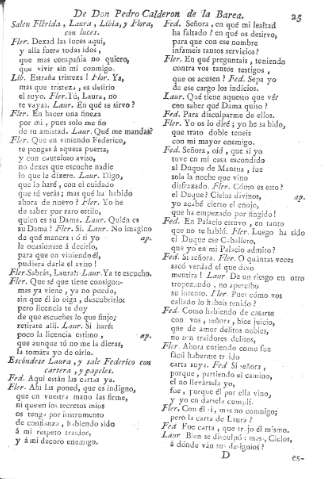 De Don Pedro Calderon de la Barca. 25
Salen Flérida, Laura, Libia, y Flora,
con luces.
Fler. Dexad las luces aqui,
y allà fuera todas idos,
que mas compañia no quiero,
que vivir sin mi conmigo.
Lib. Estraña tristeza! Flor. Ya,
mas que tristeza, es delirio
el suyo. Fler. Tù, Laura, no
te vayas. Laur. En què te sirvo?
Fler. En hacer una fineza
por mi, pues solo me fio
de tu amistad. Laur. Què me mandas?
Fler. Que en viniendo Federico,
te pongas à aquesa puerta,
y con cauteloso aviso,
no dexes que escuche nadie
lo que le dixere. Laur. Digo,
que lo harè, con el cuidado
que tù veràs; mas què ha habido
ahora de nuevo? Fler. Yo he
de saber por raro estilo,
quien es su Dama. Laur. Quièn es
su Dama? Fler. Si. Laur. No imagino
de què manera: ò si yo ap.
le ocasionase à decirlo,
para que en viniendo èl,
pudiera darla el aviso!
Fler. Sabràs, Laura: Laur. Ya te escucho.
Fler. Que sè que tiene consigo:
mas ya viene, ya no puedo,
sin que èl lo oiga, descubrirlo:
pero licencia te doy
de que escuches lo que finjo;
retirate alli. Laur. Si harè:
poco la licencia estimo, ap.
que aunque tù no me la dieras,
la tomàra yo de oirlo.
Escondese Laura, y sale Federico con
cartera, y papeles.
Fed. Aqui estàn las cartas ya.
Fler. Ahi las poned, que es indigno,
que en vuestra mano las firme,
ni queden los secretos mios
os tenga por instrumento
de confianza, habiendo sido
à mi respeto traidor,
y à mi decoro enemigo.
Fed. Señora, en què mi lealtad
ha faltado? en què os desirvo,
para que con ese nombre
infameis tantos servicios?
Fler. En què preguntais, teniendo
contra vos tantos testigos,
que os acusen? Fed. Sepa yo
de ese cargo los indicios.
Laur. Què tiene aquesto que vèr
con saber què Dama quiso?
Fed. Para disculparme de ellos.
Fler. Yo os lo dirè; yo he sabido,
que trato doble teneis
con mi mayor enemigo.
Fed. Señora, oid, que si yo
tuve en mi casa escondido
al Duque de Mantua, fue
sola la noche que vino
disfrazado. Fler. Còmo es esto?
el Duque? Cielos divinos, ap.
yo acabè cierto el enojo,
que ha empezado por fingido!
Fed. En Palacio estuvo, en tanto
que no te hablò. Fler. Luego ha sido
el Duque ese Caballero,
que yo en mi Palacio admito?
Fed. Si señora. Fler. O quàntas veces
sacò verdad el que daxo
mentira! Laur. De un riesgo en otro
tropezando, no apercibo
su intento. Fler. Pues còmo vos
callado lo habeis tenido?
Fed. Como habiendo de casarse
con vos, señora, hice juicio,
que de amor delitos nobles,
no son traidores delitos.
Fler. Ahora entiendo como fue
facil haberme traido
carta suya. Fed. Si señora,
porque, partiendo el camino,
el no llevàrsela yo,
fue, porque èl por ella vino,
y yo en dàrsela cumplì.
Fler. Con èl sì, mas no conmigo;
pero la carta de Laura?
Fed. Fue carta, que traxo èl mismo.
Laur. Bien se disculpò: mas, Cielos,
à dònde vàn sus designios?
D es-